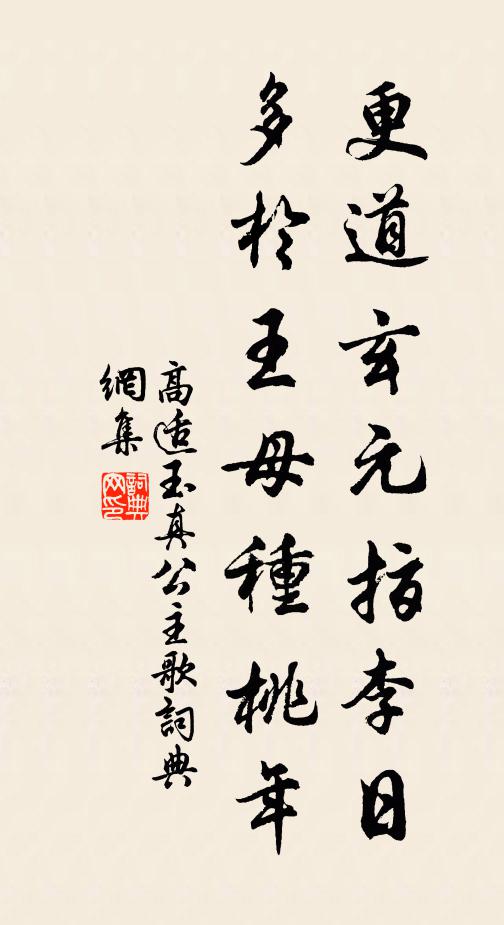 更道玄元指李日
多於王母種桃年
高適玉真公主歌詞典
網集
詞典網印